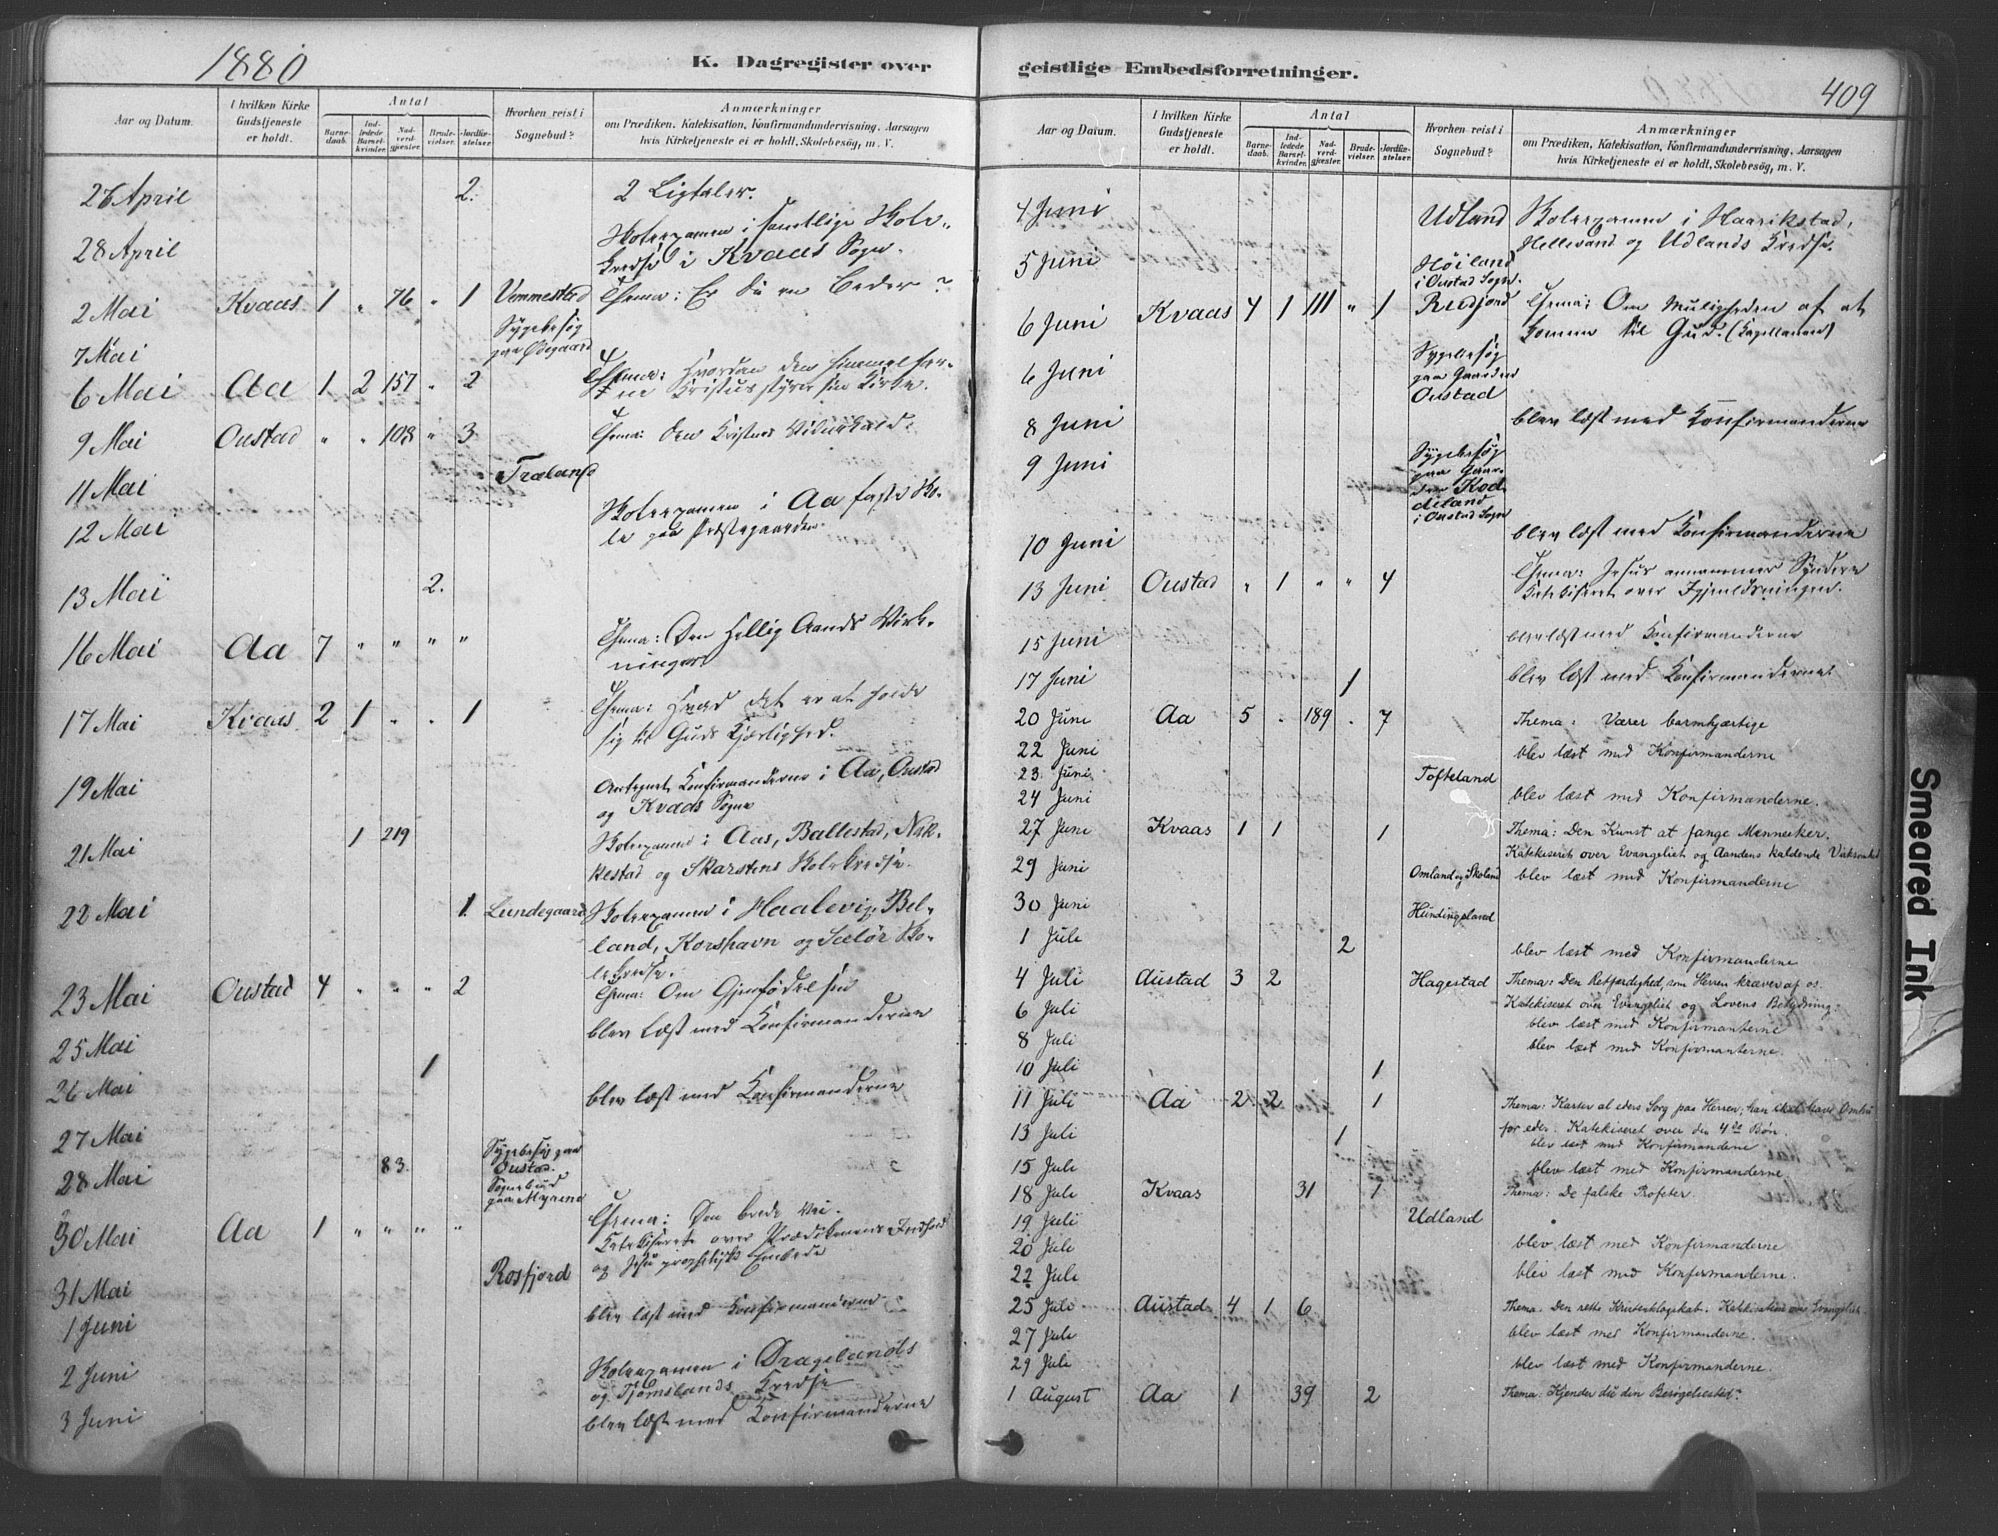 1880
K. Dagregister over
Aar og Datum.
I hvilken Kirke Gudstjeneste er holdt.
Antal
Barnedaab.
Indledede Barselkvinder.
Nadverdgjester.
Brudevielser.
Jordfæstelser.
Hvorhen reist i Sognebud?
Anmærkninger
om Prædiken, Katekisation, Konfirmandundervisning, Aarsagen
hvis Kirketjeneste ei er holdt, Skolebesøg, m. V.
26 April 2. 2 Ligtaler.
28 April Skoleexamen i samtlige Skole-
kredse i Kvaas Sogn.
2 Mai Kvaas 1 " 76 " 1 Vemmestad Thema: Er du en Beder?
7 Mai Sygebesøg
paa Ødegaard
6 Mai Aa 1 2 157 " 2 Thema: Hvordan den himmelfar-
ne Kristus styrer sin Kirke.
9 Mai Oustad " " 108 " 3 Thema: Den Kristnes Vidnekald.
11 Mai Træland
12 Mai Skoleexamen i Aa faste Sko-
le paa Præstegaarden.
13 Mai 2.
16 Mai Aa 7 " " " " Thema: Den Hellig Aands Virk-
ninger
17 Mai Kvaas 2 1 " " 1 Thema: Hvad det er at holde
sig til Guds Kjærlighed.
19 Mai Antegnet Konfirmanderne i Aa, Oustad
og Kvaas Sogne
21 Mai 1 219 Skoleexamen i Aas, Ballestad, Nak-
kestad og Skarstens Skolekredse.
22 Mai 1. Lundegaard Skoleexamen i Haalevig, Bel-
land, Korshavn og Sælør Sko-
lekredse.
23 Mai Oustad 4 " " " 2 Thema: Om Gjenfødelsen
25 Mai blev læst med Konfirmanderne
26 Mai 1
27 Mai blev læst med Konfirmanderne
28 Mai 83. Sygebesøg paa
Oustad.
Sognebud
paa Myrene
30 Mai Aa 1 " " " " Thema: Den brede Vei.
Katekiserede over Prædikenens Indhold
og Jesu prophetisk Embede
31 Mai Rosfjord
1 Juni blev læst med Konfirmanderne
2 Juni Skoleexamen i Dragelands
og Tjomslands Kredse
3 Juni blev læst med Konfirmanderne
geistlige Embedsforretninger.
409
Aar og Datum.
I hvilken Kirke Gudstjeneste er holdt.
Antal
Barnedaab.
Indledede Barselkvinder.
Nadverdgjester.
Brudevielser.
Jordfæstelser.
Hvorhen reist i Sognebud?
Anmærkninger
om Prædiken, Katekisation, Konfirmandundervisning, Aarsagen
hvis Kirketjeneste ei er holdt, Skolebesøg, m. V.
4 Juni Udland Skoleexamen i Haarikstad,
Hellevand og Udlands Kredse.
5 Juni Høiland
i Oustad Sogn.
6 Juni Kvaas 4 1 111 " 1 Rudjord Thema: Om Muligheden af at
komme til Gud. (Kapellanen)
6 Juni Sygebesøg
paa Gaarden
Oustad
8 Juni blev læst med Konfirmanderne
9 Juni Sygebesøg
paa Gaar-
den Kod-
deland
i Oustad Sogn
10 Juni blev læst med Konfirmanderne
13 Juni Oustad " 1 " " 4 Thema: Jesus annammer Syndere
Katekiseret over Igjenløsningen.
15 Juni blev læst med Konfirmanderne
17 Juni 1 blev læst med Konfirmanderne.
20 Juni Aa 5 " 189 " 7 Thema: Værer barmhjærtige
22 Juni blev læst med Konfirmanderne
23 Juni Tofteland
24 Juni blev læst med Konfirmanderne.
27 Juni Kvaas 1 1 1 Thema: Den Kunst at fange Mennesker.
Katekiseret over Evangeliet og Aandens kaldende Virksomhed
29 Juni Omland og Skoland blev læst med Konfirmanderne
30 Juni Hundingsland
1 Juli 2 blev læst med Konfirmanderne
4 Juli Austad 3 2 Hagestad Thema: Den Retfærdighed, som Herren kræver af os.
Katekiseret over Evangeliet og Lovens Betydning.
6 Juli blev læst med Konfirmanterne
8 Juli blev læst med Konfirmanterne.
10 Juli 1
11 Juli Aa 2 2 1 Thema: Kaster al eders Sorg paa Herren, han skal have Omhu
for eder. Katekiseret over den 4de Bøn.
13 Juli 1 blev læst med Konfirmanderne
15 Juli blev læst med Konfirmanderne
18 Juli Kvaas 31 1 Thema: De falske Profeter.
19 Juli Udland
20 Juli blev læst med Konfirmanderne
22 Juli blev læst med Konfirmanderne.
25 Juli Austad 4 1 6 Thema: Den rette Kristenklogskab. Katekisation over Evangeliet.
27 Juli blev læst med Konfirmanderne.
29 Juli blev læst med Konfirmanderne.
1 August Aa 1 39 2 Thema: Kjender du din Besøgelsestid?
Smeared Ink